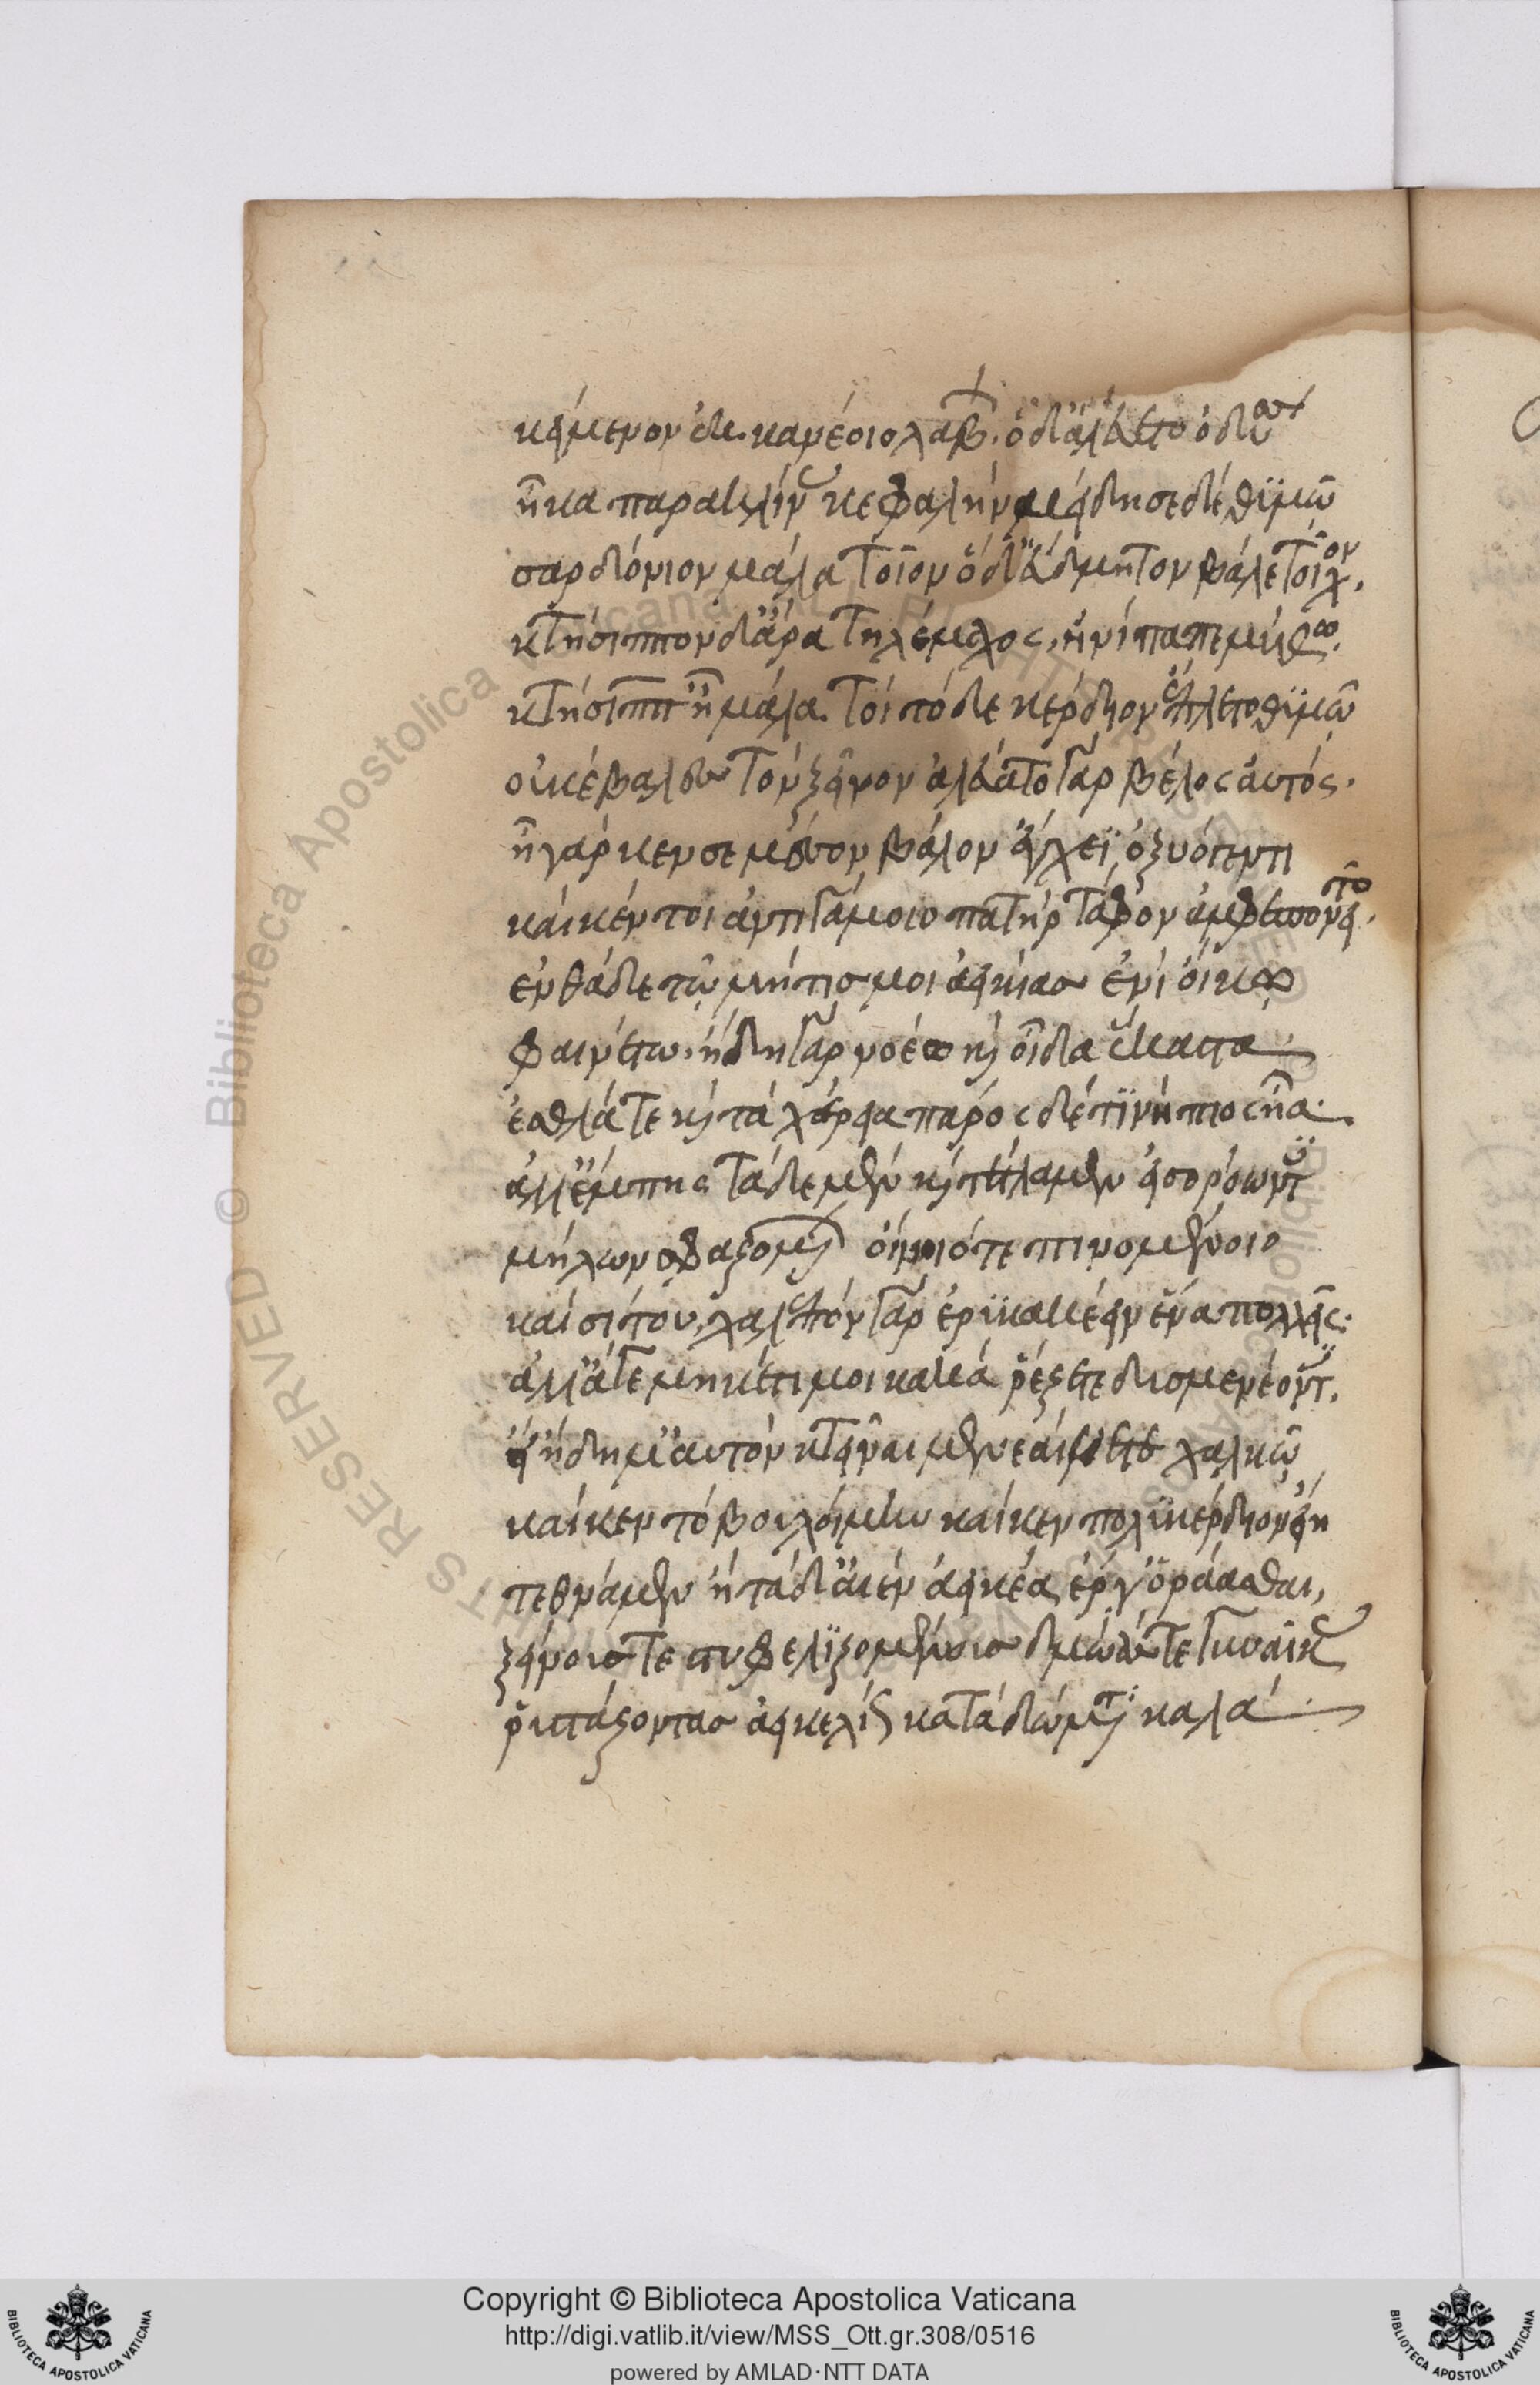 κείμενον ἐκ κανέοιο λαβ. ὁ δ᾽ ἀλεύατο ὀδυσσεύς
ἦκα παρακλίνας κεφαλὴν μείδησε δὲ θϋμῶ
σαρδόνιον μάλα τοῖον ὁ δ᾽ εὔδμητον βάλε τοῖχον.
κτήσιππον δ᾽ ἄρα τηλέμαχος, ἠνίπαπε μύθω.
κτήσιππ᾽ ἦ μάλα τοί τόδε κέρδιον ἔπλετο θϋμῶ
οὐκ ἔβαλες τὸν ξεῖνον ἀλεύατο γὰρ βέλος αὐτός.
ἦ γάρ κεν σε μέσον βάλον ἔγχεϊ ὀξυόεντι
καί κέν τοι ἀντὶ γάμοιο πατὴρ τάφον ἀμφεπονεῖτο.
ἐνθάδε τῶ μήτις μοι ἀεικίας ἐνὶ οἴκω
φαινέτω. ἤδη γὰρ νοέω καὶ οἶδα ἕκαστα.
ἐσθλά τε καὶ τὰ χέρεια πάρος δ᾽ ἔτϊ νήπιος ἦα.
ἀλλ᾽ ἔμπης τάδε μὲν καὶ τέτλαμεν εἰσορόωντες
μήλων σφαζομένων οἴνοιό τε πινομένοιο
καὶ σίτου. χαλεπὸν γὰρ ἐρϋκακέειν ἕνα πολλοῖς.
ἀλλ᾽ ἄγε μηκέτι μοι κακὰ ῥέζετε δυσμενέοντες.
εἰ ἤδη μ᾽ αὐτὸν κτεῖναι μενεαίνετε χαλκῶ
καί κεν τὸ βουλοίμην καί κεν πολϋ κέρδιον εἴη
τεθνάμεν ἢ τάδ᾽ αἰὲν ἀεικέα ἔργ᾽ ὁράασθαι,
ξείνους τε στυφελϊζομένους δμωάς τε γυναῖκας
ῥυστάζοντας ἀεικελίως κατὰ δώματα καλά.